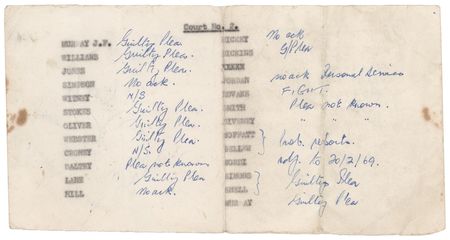 Court No. 2.
MURRAY J.F. Guilty Plea
WILLIAMS Guilty Plea.
JONES Guilty Plea.
SIMPSON No ack.
WITNEY N/S
STOKES Guilty Plea.
OLIVER Guilty Plea.
WEBSTER Guilty Plea.
CRONEY N/S.
DALTRY Plea not known
LANE Guilty Plea
HILL no ack.
No ack
DICKINS G/Plea
XXXXX
JORDAN no ack Personal Service
FIGHT.
SMITH Plea not known.
" "
MOFFATT } Prob. reports.
adj. to 20/2/69.
SIMMONS } Guilty Plea
SNELL
MURRAY Guilty Plea